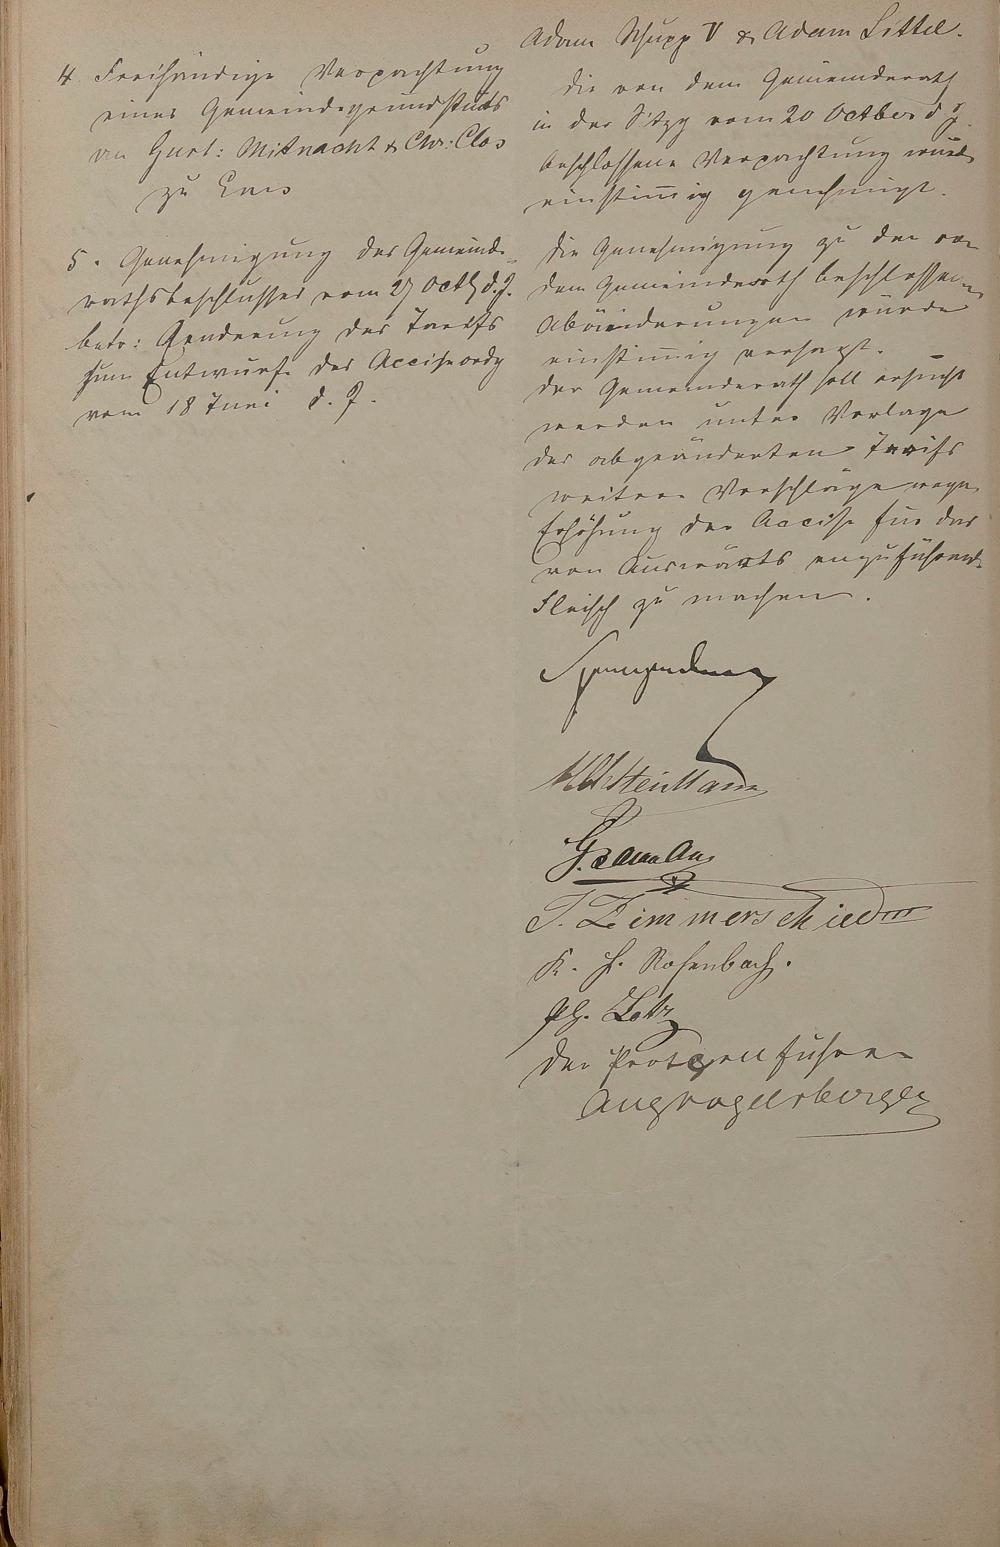 Adam Schupp V & Adam Littel.
4. Freihändige Verpachtung
eines Gemeindegrundstücks
an Gurt: Mitnacht & Chr: Clos
zu Ems
die von dem Gemeinderath
in der Sitzg vom 20 October d J.
beschlossene Verpachtung wurde
einstimig genehmigt.
5. Genehmigung des Gemeinde-
rathsbeschlusses vom 27 Octb d. J.
betr: Aenderung des Tarifs
zum Entwurfe der Acciseordg
vom 18 Juni d. J.
Die Genehmigung zu den von
dem Gemeinderath beschlossenen
Abänderungen wurde
einstimig versagt. –
Der Gemeinderath soll ersucht
werden unter Vorlage
des abgeänderten Tarifs
weitere Vorschläge wegen
Erhöhung der Accise für das
von Auswärts einzuführende
Fleisch zu machen.
J. Zimmerschied
K. H. Rosenbach.
Ph. Lotz
Der Protocollführer
Aug Vogelsberger